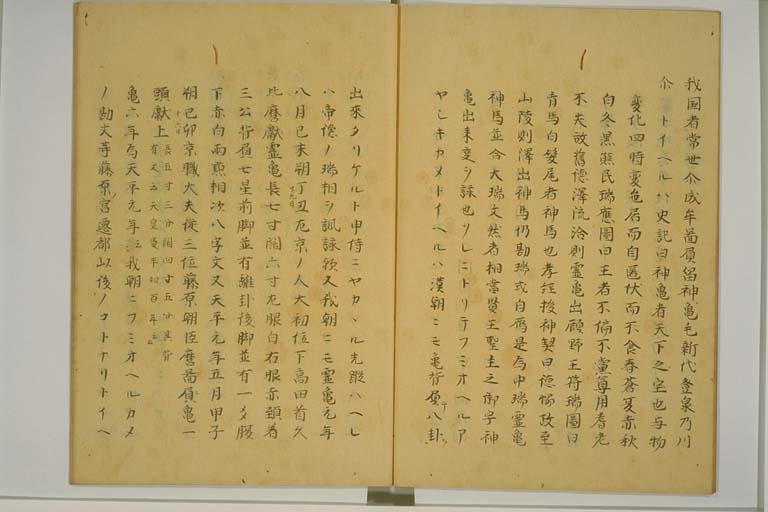 我国者常世尓成牟啚負留神亀毛新代登泉乃川
尓 トイヘルハ史記曰神亀者天下之宝也与物
変化四時変色居而自匿伏而不食春蒼夏赤秋
白冬黒熊氏瑞応圖曰王者不偏不黨尊用耆老
不失故舊徳澤流洽則霊亀出顧野王符瑞圖曰
青馬白髪尾者神馬也孝経援神契曰徳協政至
山陵則澤出神馬仍勘瑞式自馬是為中瑞霊亀
神馬並合大瑞文然者相當賢王聖主之御宇神
亀出来変ヲ詠也ソレニトリテフミオヘルア
ヤシキカメトイヘルハ漢朝ニモ亀背ニ負八卦
出來タリケルト申侍ニヤカヽル先蹤ハヘレ
ハ帝德ノ瑞相ヲ諷詠歟又我朝ニモ霊亀元年
八月己未朔丁丑九日左京ノ人大初位下高田首久
比麿獻霊亀長七寸闊六寸左眼白右眼赤頚著
三公背負七星前脚並有離卦後脚並有一爻腹
下赤白両点相次八字文又天平元年五月甲子
朔己卯十六日京職大夫従三位藤原朝臣麿啚負亀一
頭献上長五寸三分闊四寸五分其背有文云天皇貴平知百年云々
亀六年為天平元年注我朝ニフミオヘルカメ
ノ勘文等藤原ノ宮遷都以後ノコトナリトイヘ